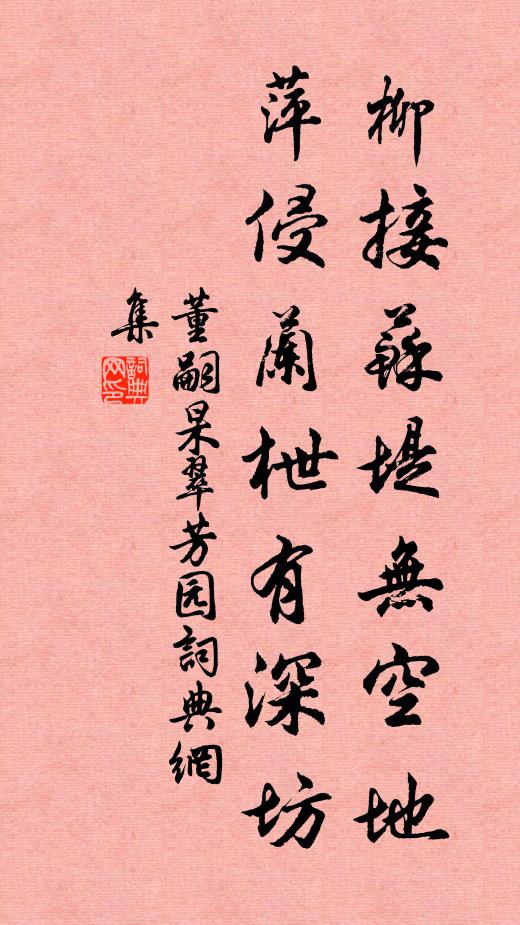 柳接蘇堤無空地
萍侵蘭枻有深坊
董嗣杲翠芳园詞典網
集
詞典网印